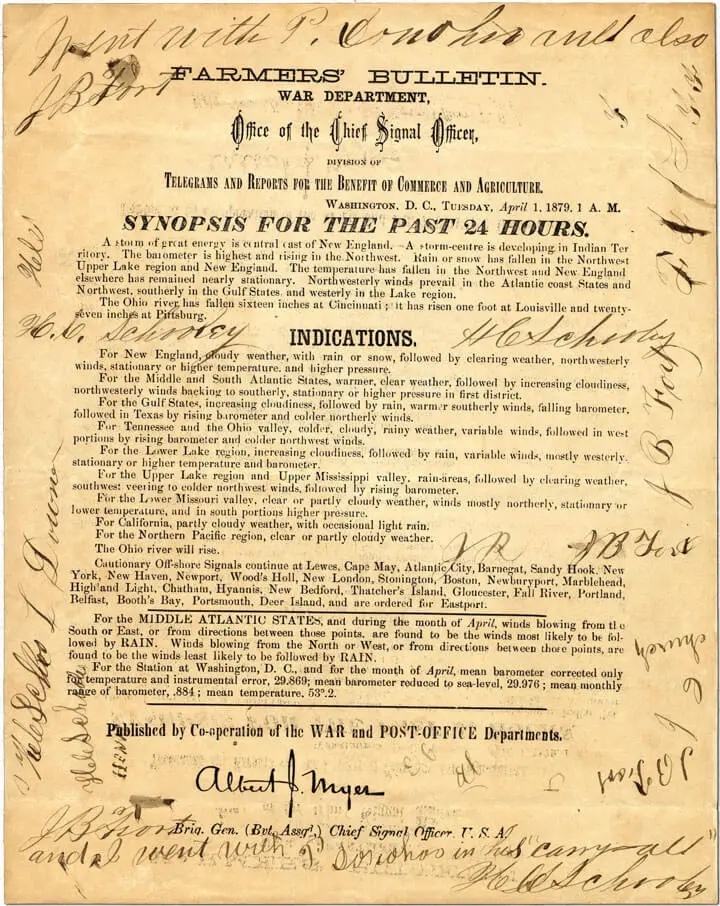 went with P. Donohos and also
J B Fort
FARMERS' BULLETIN.
WAR DEPARTMENT,
Office of the Chief Signal Officer,
DIVISION OF
TELEGRAMS AND REPORTS FOR THE BENEFIT OF COMMERCE AND AGRICULTURE.
WASHINGTON, D. C., TUESDAY, April 1, 1879, 1 A. M.
SYNOPSIS FOR THE PAST 24 HOURS.
A storm of great energy is central east of New England. A storm-centre is developing in Indian Ter
ritory. The barometer is highest and rising in the Northwest. Rain or snow has fallen in the Northwest
Upper Lake region and New England. The temperature has fallen in the Northwest and New England
elsewhere has remained nearly stationary. Northwesterly winds prevail in the Atlantic coast States and
Northwest, southerly in the Gulf States and westerly in the Lake region.
The Ohio river has fallen sixteen inches at Cincinnati; it has risen one foot at Louisville and twenty-
seven inches at Pittsburg.
H. C. Schooley
H C Schooley
INDICATIONS.
For New England, cloudy weather, with rain or snow, followed by clearing weather, northwesterly
winds, stationary or higher temperature, and higher pressure.
For the Middle and South Atlantic States, warmer, clear weather, followed by increasing cloudiness,
northwesterly winds backing to southerly, stationary or higher pressure in first district.
For the Gulf States, increasing cloudiness, followed by rain, warmer southerly winds, falling barometer,
followed in Texas by rising barometer and colder northerly winds.
For Tennessee and the Ohio valley, colder, cloudy, rainy weather, variable winds, followed in west
portions by rising barometer and colder northwest winds.
For the Lower Lake region, increasing cloudiness, followed by rain, variable winds, mostly westerly,
stationary or higher temperature and barometer.
For the Upper Lake region and Upper Mississippi valley, rain-areas, followed by clearing weather,
southwest veering to colder northwest winds, followed by rising barometer.
For the Lower Missouri valley, clear or partly cloudy weather, winds mostly northerly, stationary or
lower temperature, and in south portions higher pressure.
For California, partly cloudy weather, with occasional light rain.
For the Northern Pacific region, clear or partly cloudy weather.
The Ohio river will rise.
J B Fort
Cautionary Off-shore Signals continue at Lewes, Cape May, Atlantic City, Barnegat, Sandy Hook, New
York, New Haven, Newport, Wood's Holl, New London, Stonington, Boston, Newburyport, Marblehead,
Highland Light, Chatham, Hyannis, New Bedford, Thatcher's Island, Gloucester, Fall River, Portland,
Belfast, Booth's Bay, Portsmouth, Deer Island, and are ordered for Eastport.
For the MIDDLE ATLANTIC STATES, and during the month of April, winds blowing from the
South or East, or from directions between those points, are found to be the winds most likely to be fol-
lowed by RAIN. Winds blowing from the North or West, or from directions between those points, are
found to be the winds least likely to be followed by RAIN.
For the Station at Washington, D. C., and for the month of April, mean barometer corrected only
for temperature and instrumental error, 29.869; mean barometer reduced to sea-level, 29.976; mean monthly
range of barometer, .884; mean temperature, 53°.2.
Published by Co-operation of the WAR and POST-OFFICE Departments.
Albert J. Myer
Brig. Gen. (Bvt. Assg'd,) Chief Signal Officer, U. S. A.
J B Fort
and I went with P Donohos in his "carry-all"
H C Schooley
J B Fort
church
J B Fort